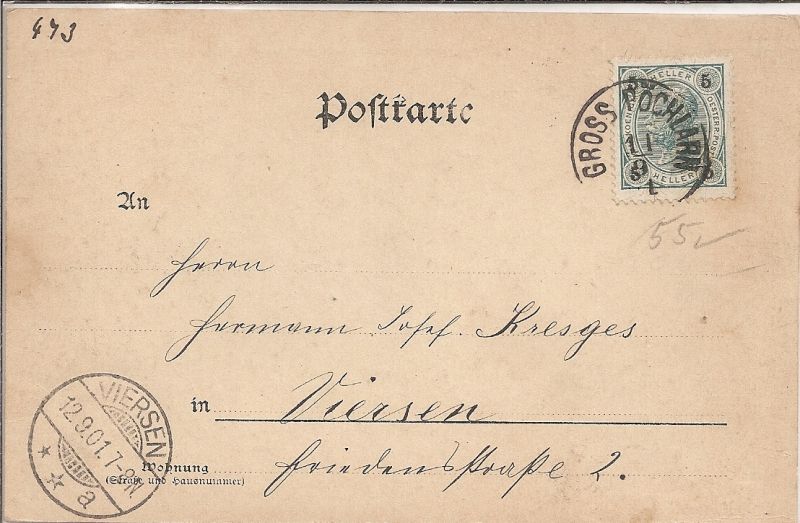 473
Postkarte
5
HELLER
OESTERR. POST
HELLER
GROSS PÖCHLARN
11
9
1
55
An
Herrn
Hermann Josef Kresges
in Viersen
Wohnung
(Straße und Hausnummer)
Friedensstraße 2.
VIERSEN
12.9.01.7-8N
* * a